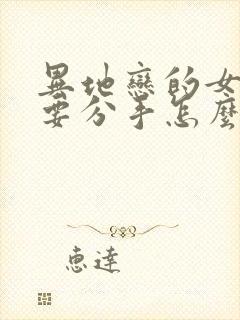 異地戀的女
要分手怎麼
惠達